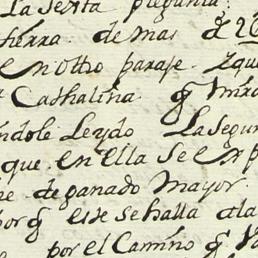 La Sexta pregunta
tierra. de mas de
en otro paraje. que
Cathalina q mira
ndole Leydo La segun
que en ella se exp
de ganado mayor.
por q este se halla a la
por el Camino q Va